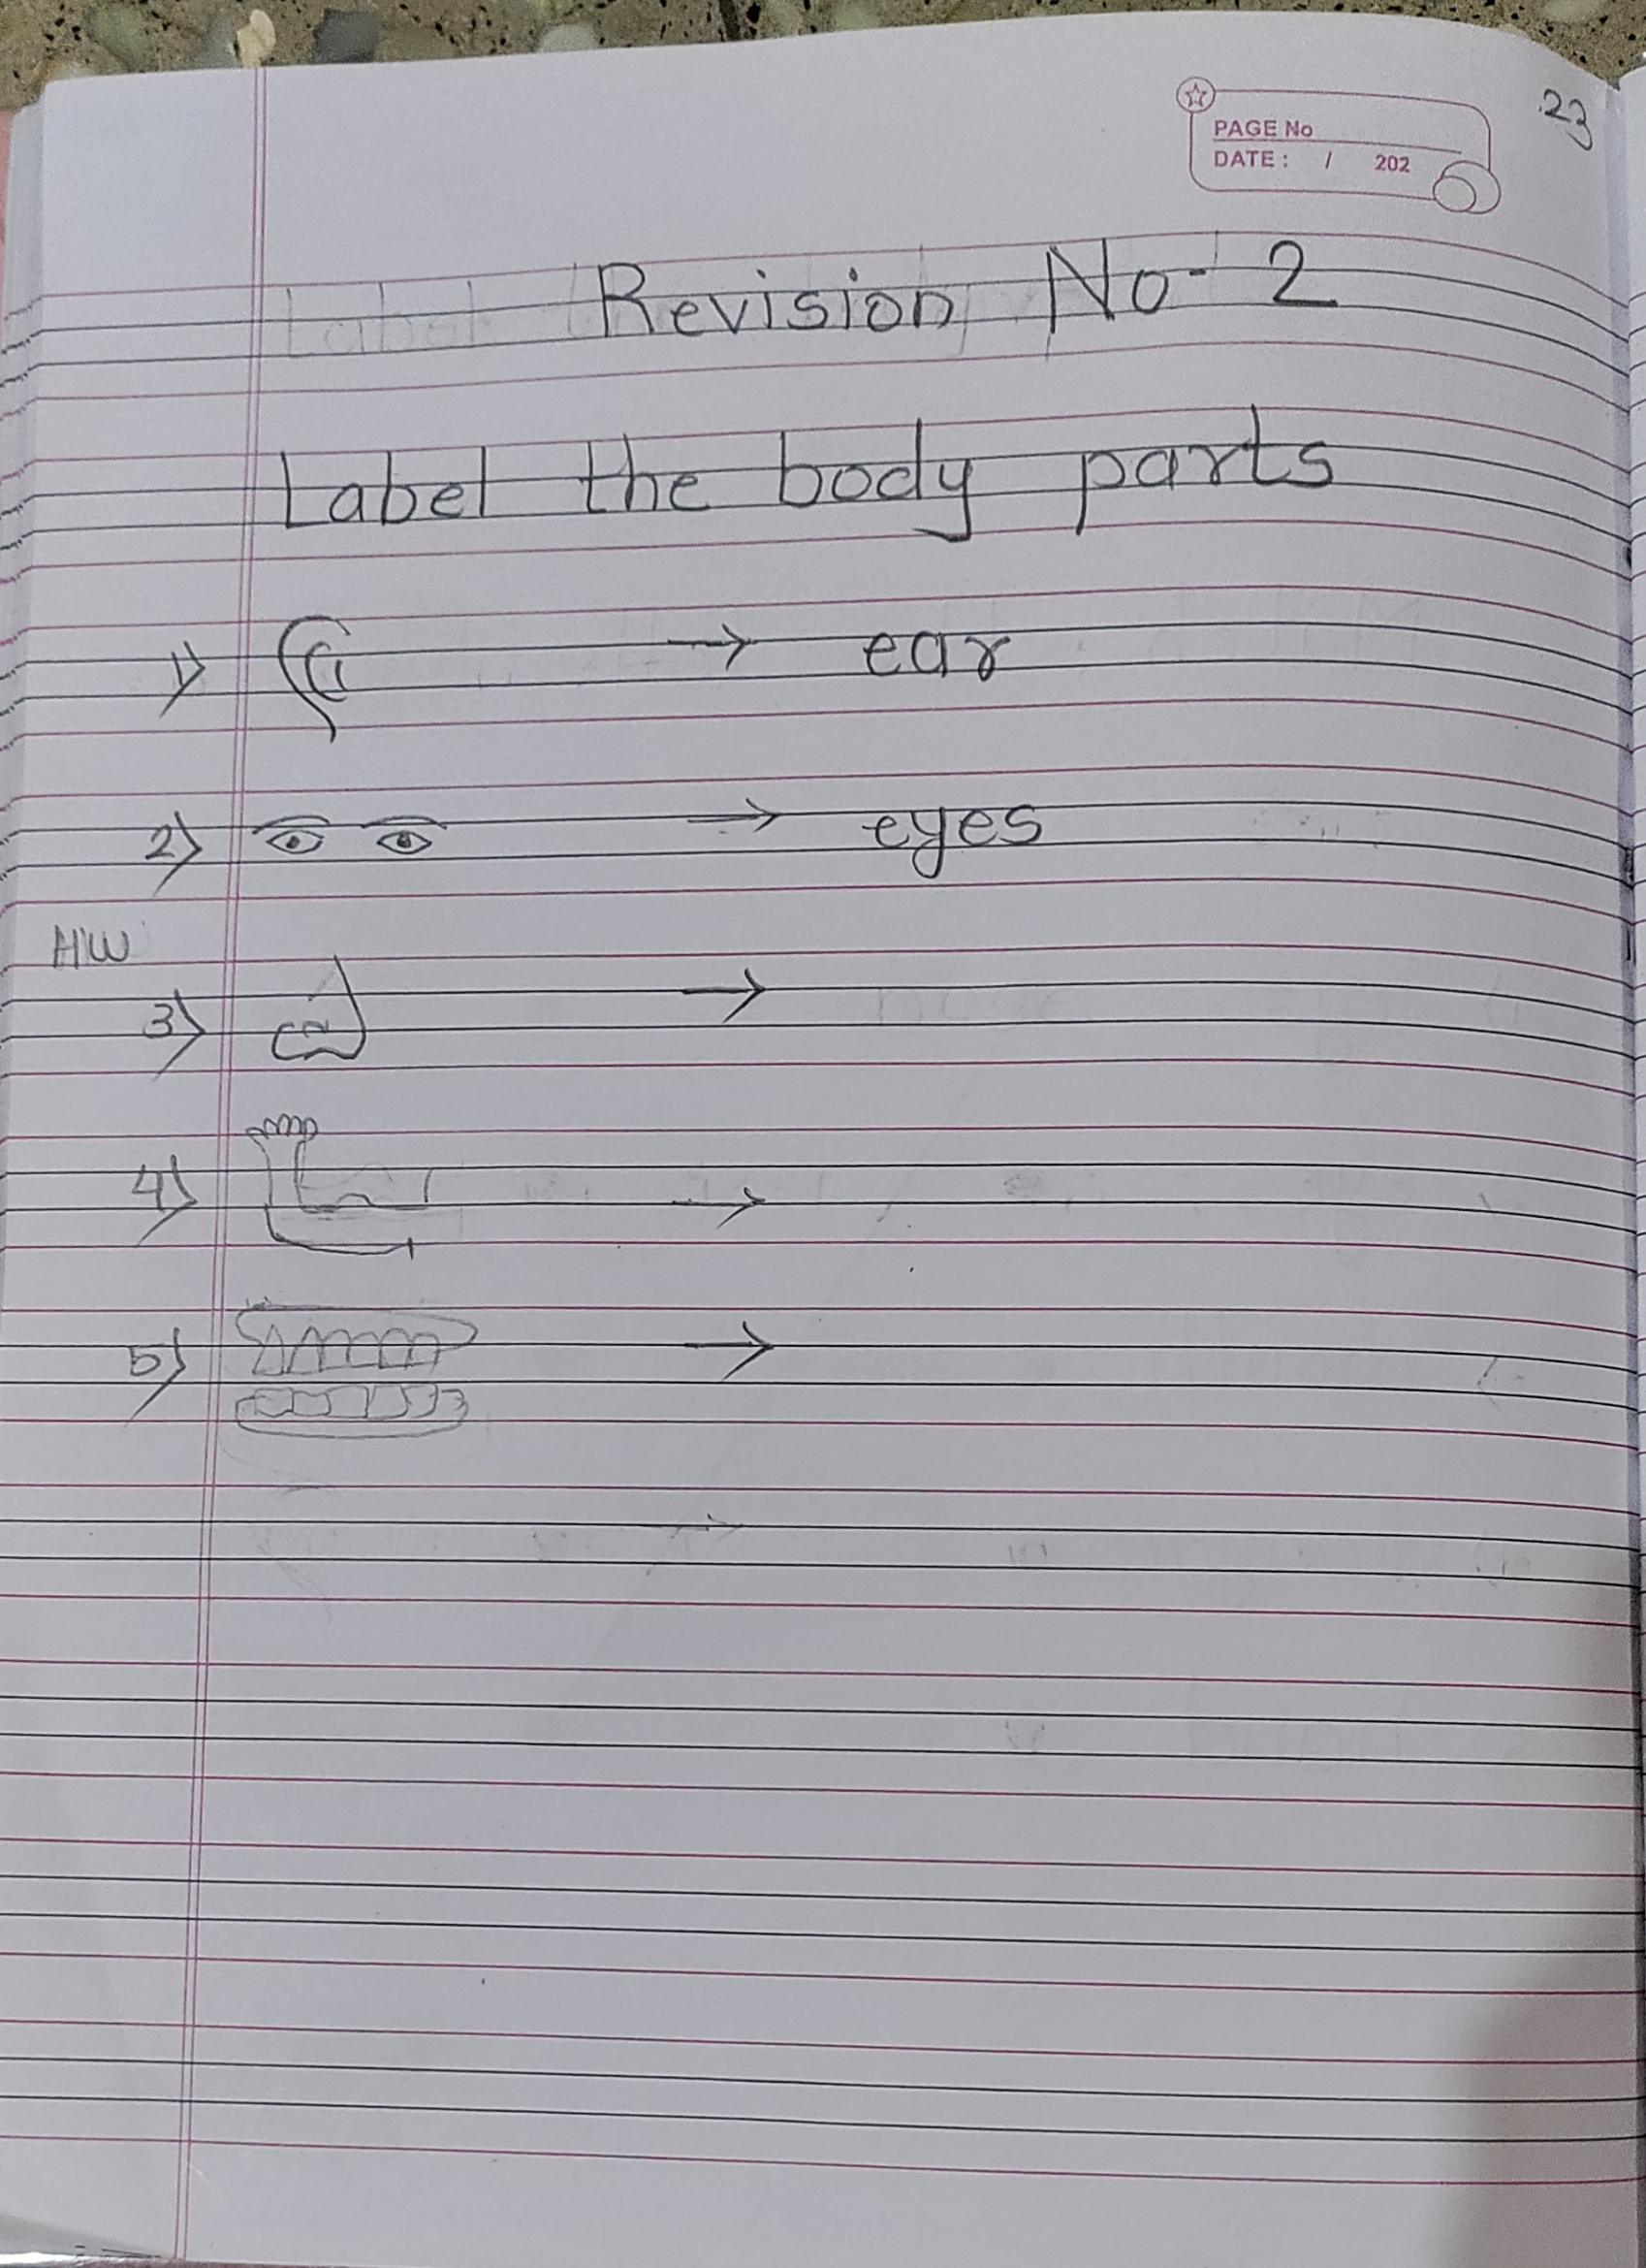 23
PAGE No
DATE : / 202
Revision No - 2
Label the body parts
1) → ear
2) → eyes
HW
3) →
4) →
5) →